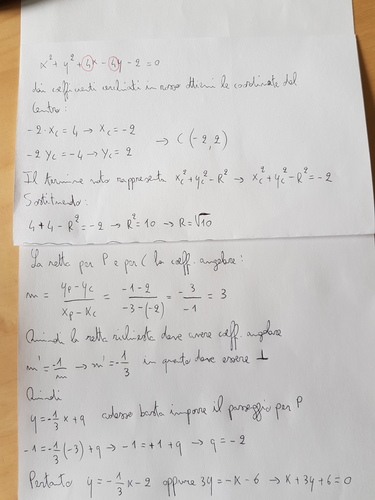 x² + y² + 4x - 4y - 2 = 0
dai coefficienti cerchiati in rosso ottieni le coordinate del
centro:
-2·x_c = 4 → x_c = -2
→ C (-2,2)
-2 y_c = -4 → y_c = 2
Il termine noto rappresenta x_c² + y_c² - R² → x_c² + y_c² - R² = -2
Sostituendo:
4 + 4 - R² = -2 → R² = 10 → R = √10
La retta per P e per C ha coeff. angolare:
m = (y_P - y_C)/(x_P - x_C) = (-1-2)/(-3-(-2)) = -3/-1 = 3
Quindi la retta richiesta deve avere coeff. angolare
m' = -1/m → m' = -1/3 in quanto deve essere ⊥
Quindi
y = -1/3 x + q adesso basta imporre il passaggio per P
-1 = -1/3 (-3) + q → -1 = +1 + q → q = -2
Pertanto y = -1/3 x - 2 oppure 3y = -x - 6 → x + 3y + 6 = 0